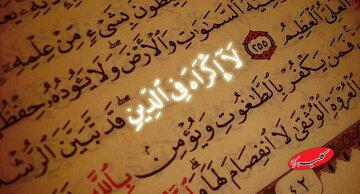 بِشَىْءٍ مِّنْ عِلْمِهِۦٓ
ٱلسَّمَٰوَٰتِ وَٱلْأَرْضَ ۖ وَلَا يَـُٔودُهُۥ حِفْظُهُ
ٱلْعَلِىُّ ٱلْعَظِيمُ ٢٥٥ لَآ إِكْرَاهَ فِى ٱلدِّينِ ۖ قَد تَّبَيَّنَ ٱلرُّشْدُ
فَمَن يَكْفُرْ بِٱلطَّٰغُوتِ وَيُؤْمِنۢ بِٱللَّهِ
ٱلْعُرْوَةِ ٱلْوُثْقَىٰ لَا ٱنفِصَامَ لَهَا ۗ